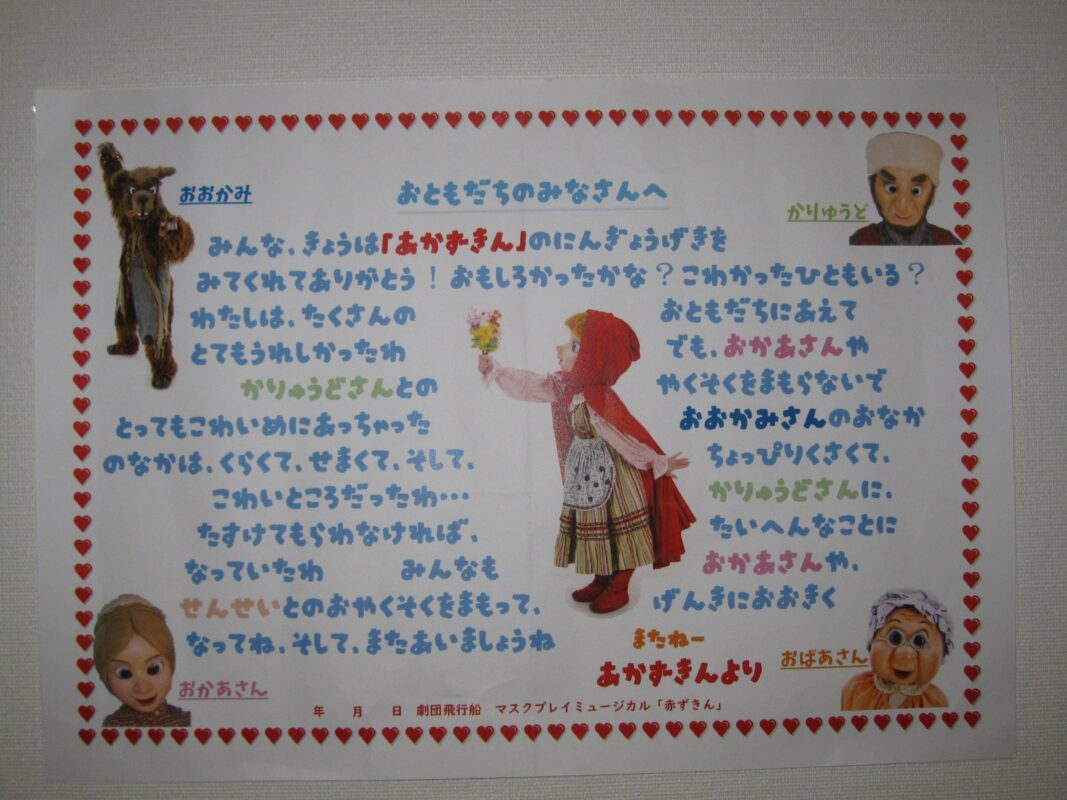 おおかみ
おともだちのみなさんへ
かりゅうど
みんな、きょうは「あかずきん」のにんぎょうげきを
みてくれてありがとう！おもしろかったかな？こわかったひともいる？
わたしは、たくさんの おともだちにあえて
とてもうれしかったわ でも、おかあさんや
かりゅうどさんとの やくそくをまもらないで
とってもこわいめにあっちゃった おおかみさんのおなか
のなかは、くらくて、せまくて、そして、 ちょっぴりくさくて、
こわいところだったわ… かりゅうどさんに、
たすけてもらわなければ、 たいへんなことに
なっていたわ みんなも おかあさんや、
せんせいとのおやくそくをまもって、 げんきにおおきく
なってね、そして、またあいましょうね
またねー
あかずきんより
おかあさん
おばあさん
年 月 日 劇団飛行船 マスクプレイミュージカル「赤ずきん」